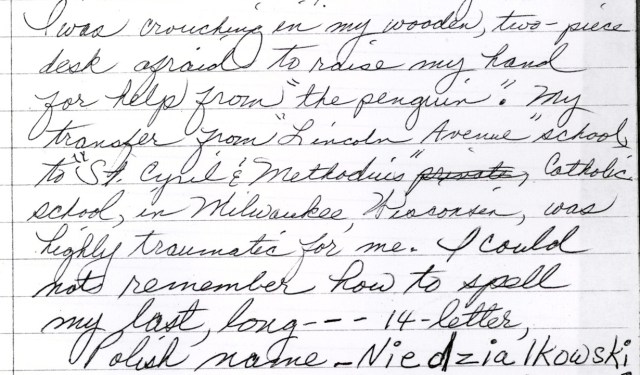 I was crouching in my wooden, two-piece
desk afraid to raise my hand
for help from "the penguin". My
transfer from "Lincoln Avenue" school,
to "St. Cyril & Methodius" private, Catholic
school, in Milwaukee, Wisconsin, was
highly traumatic for me. I could
not remember how to spell
my last, long--- 14-letter,
Polish name - Niedzialkowski